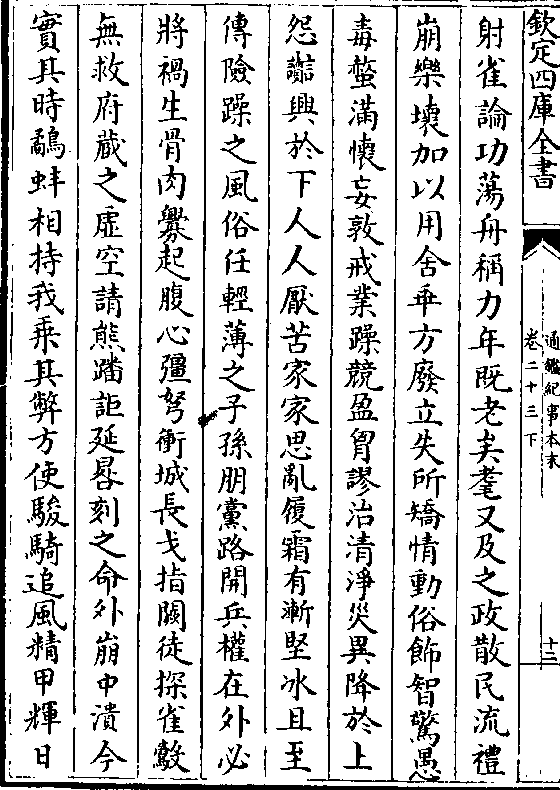 欽定四庫全書
通鑑紀事本末
卷二十三下
十三
射雀論功蕩舟稱力年既老矣耄又及之政散民流禮
崩樂壞加以用舍乖方廢立失所矯情動俗飾智驚愚
毒螫滿懷妄敦戒業躁競盈胷謬治清淨災異降於上
怨讟興於下人人厭苦家家思亂履霜有漸堅冰且至
傳險躁之風俗任輕薄之子孫朋黨路開兵權在外必
將禍生骨肉釁起腹心彊弩衝城長戈指闕徒探雀鷇
無救府藏之虛空請熊蹯詎延晷刻之命外崩中潰今
實其時鷸蚌相持我乘其弊方使駿騎追風精甲輝日